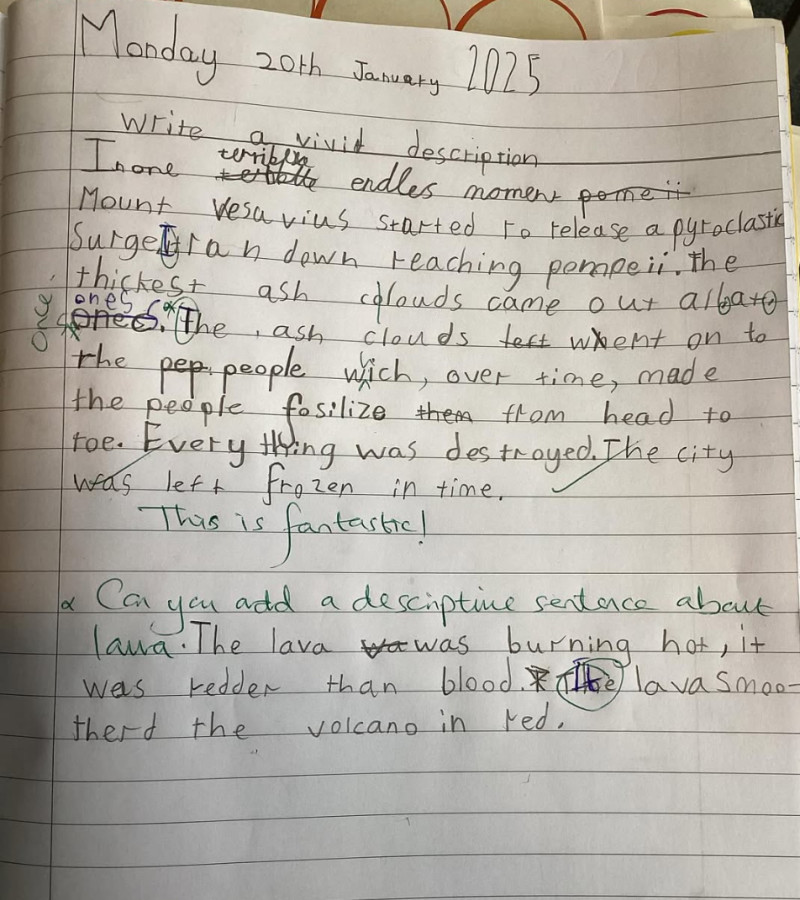 Monday 20th January 2025
Write a vivid description
In one terrible endles moment
Mount Vesavius started to release a pyroclastic
Surge It ran down reaching pompeii. The
thickest ash clouds came out at
ones. The ash clouds went on to
the people wich, over time, made
the people fosilize from head to
toe. Every thing was destroyed. The city
was left frozen in time.
This is fantastic!
Can you add a descriptive sentence about
lava. The lava was burning hot, it
was redder than blood. The lava smoo-
therd the volcano in red.